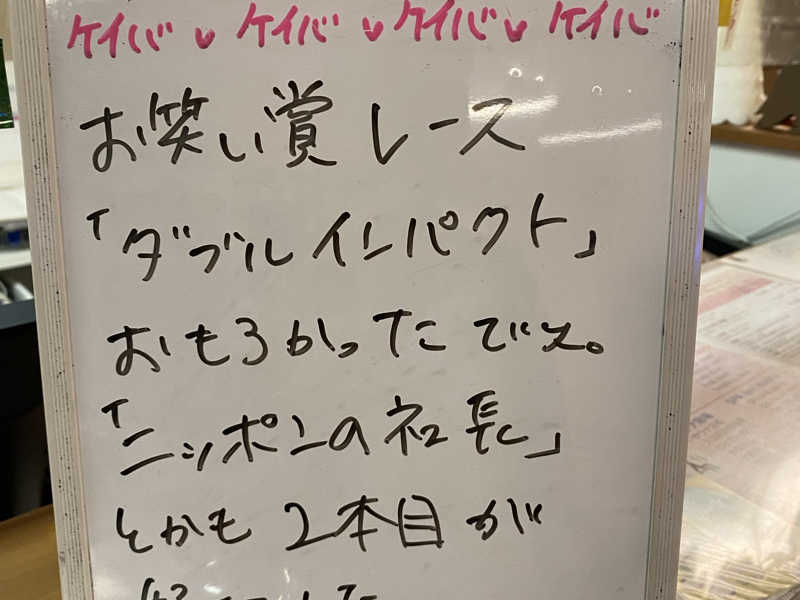 ケイバ ♥ ケイバ ♥ ケイバ ♥ ケイバ
お笑い賞レース
「ダブルインパクト」
おもろかったでえ。
「ニッポンの社長」
とかも2本目が